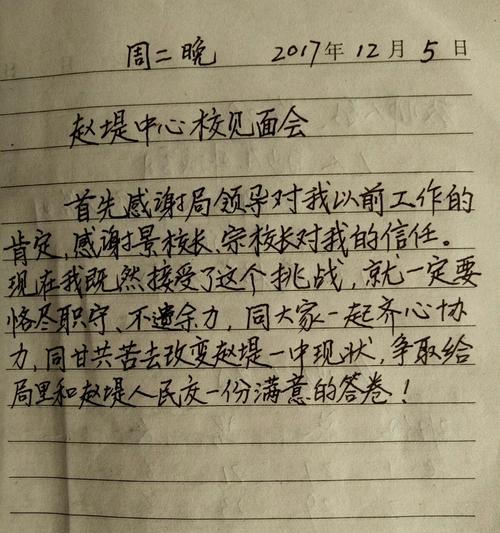 周二晚 2017年12月5日
赵堤中心校见面会
首先感谢局领导对我以前工作的
肯定,感谢景校长、宗校长对我的信任。
现在我既然接受了这个挑战,就一定要
恪尽职守、不遗余力,同大家一起齐心协
力,同甘共苦去改变赵堤一中现状,争取给
局里和赵堤人民交一份满意的答卷!